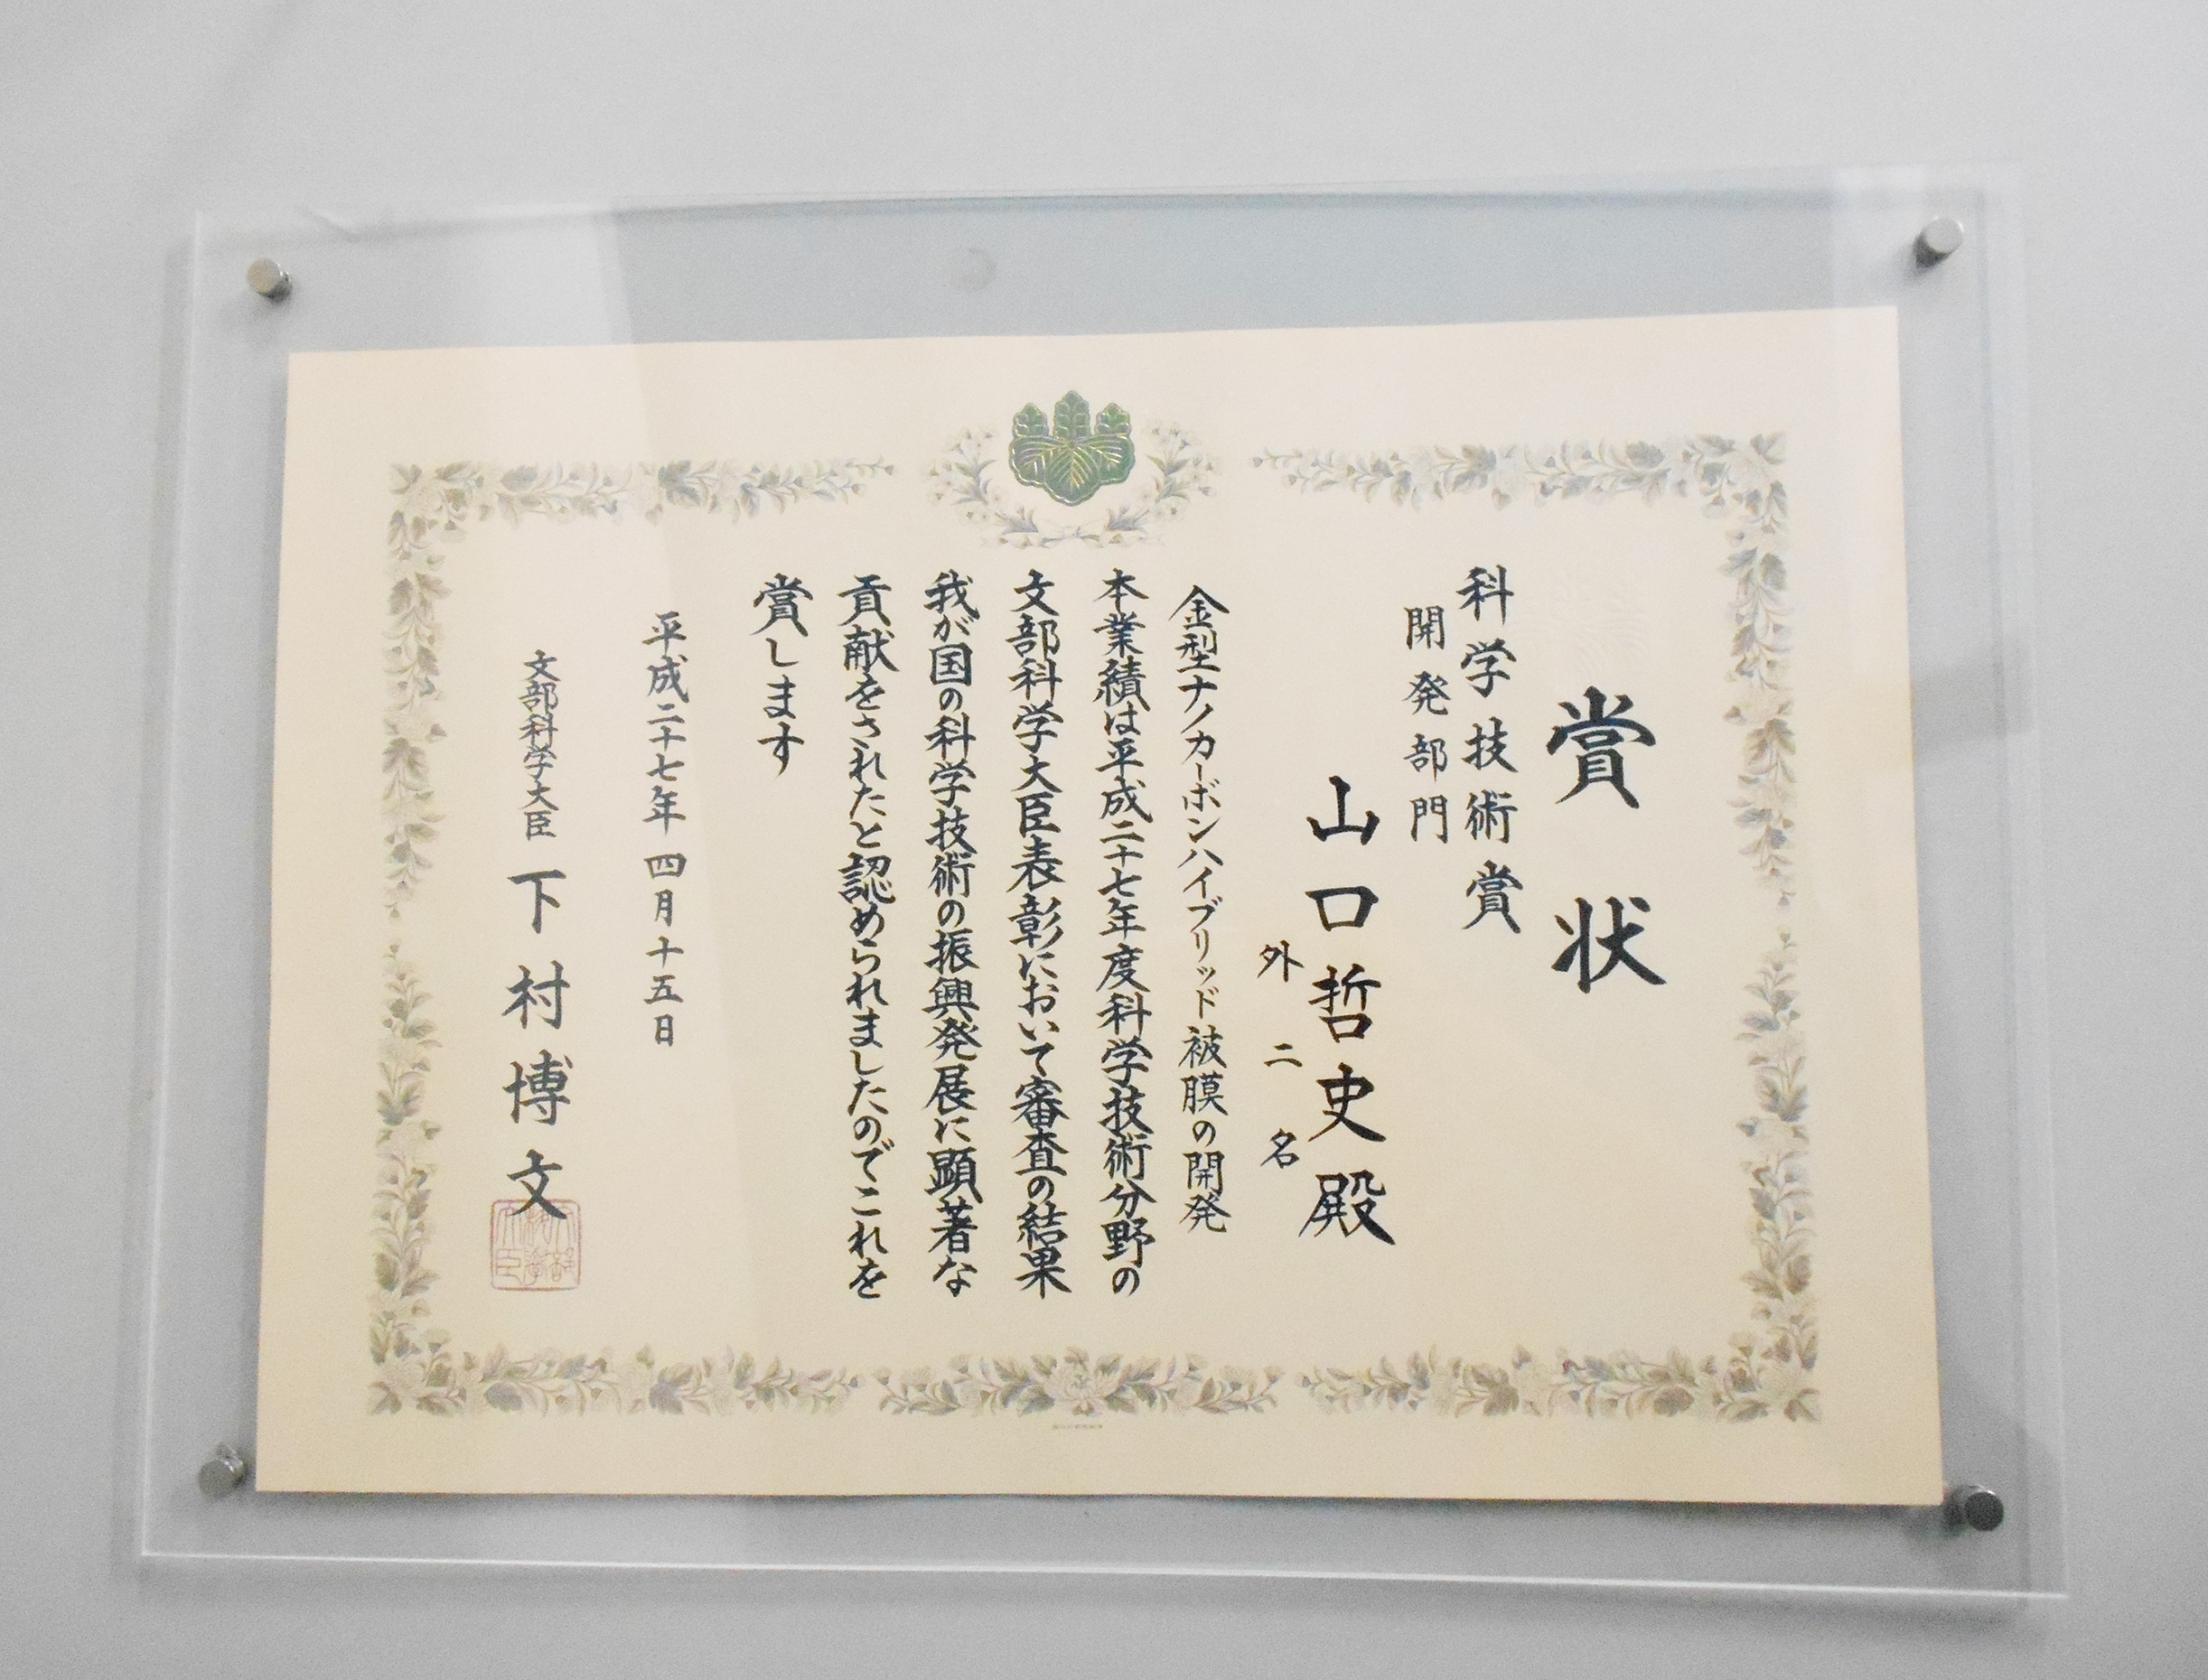 賞状
科学技術賞
開発部門
山口哲史殿
外二名
金型ナノカーボンハイブリッド被膜の開発
本業績は平成二十七年度科学技術分野の
文部科学大臣表彰において審査の結果
我が国の科学技術の振興発展に顕著な
貢献をされたと認められましたのでこれを
賞します
平成二十七年四月十五日
文部科学大臣 下村博文